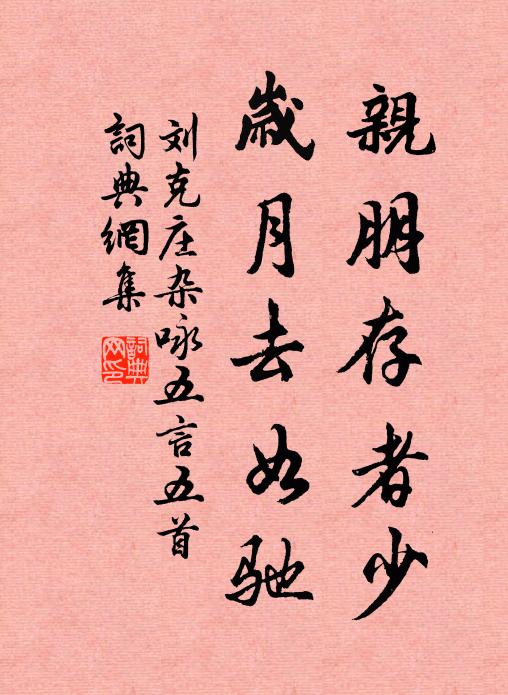 親朋存者少
歲月去如馳
刘克庄杂咏五言五首
詞典網集
詞典網印